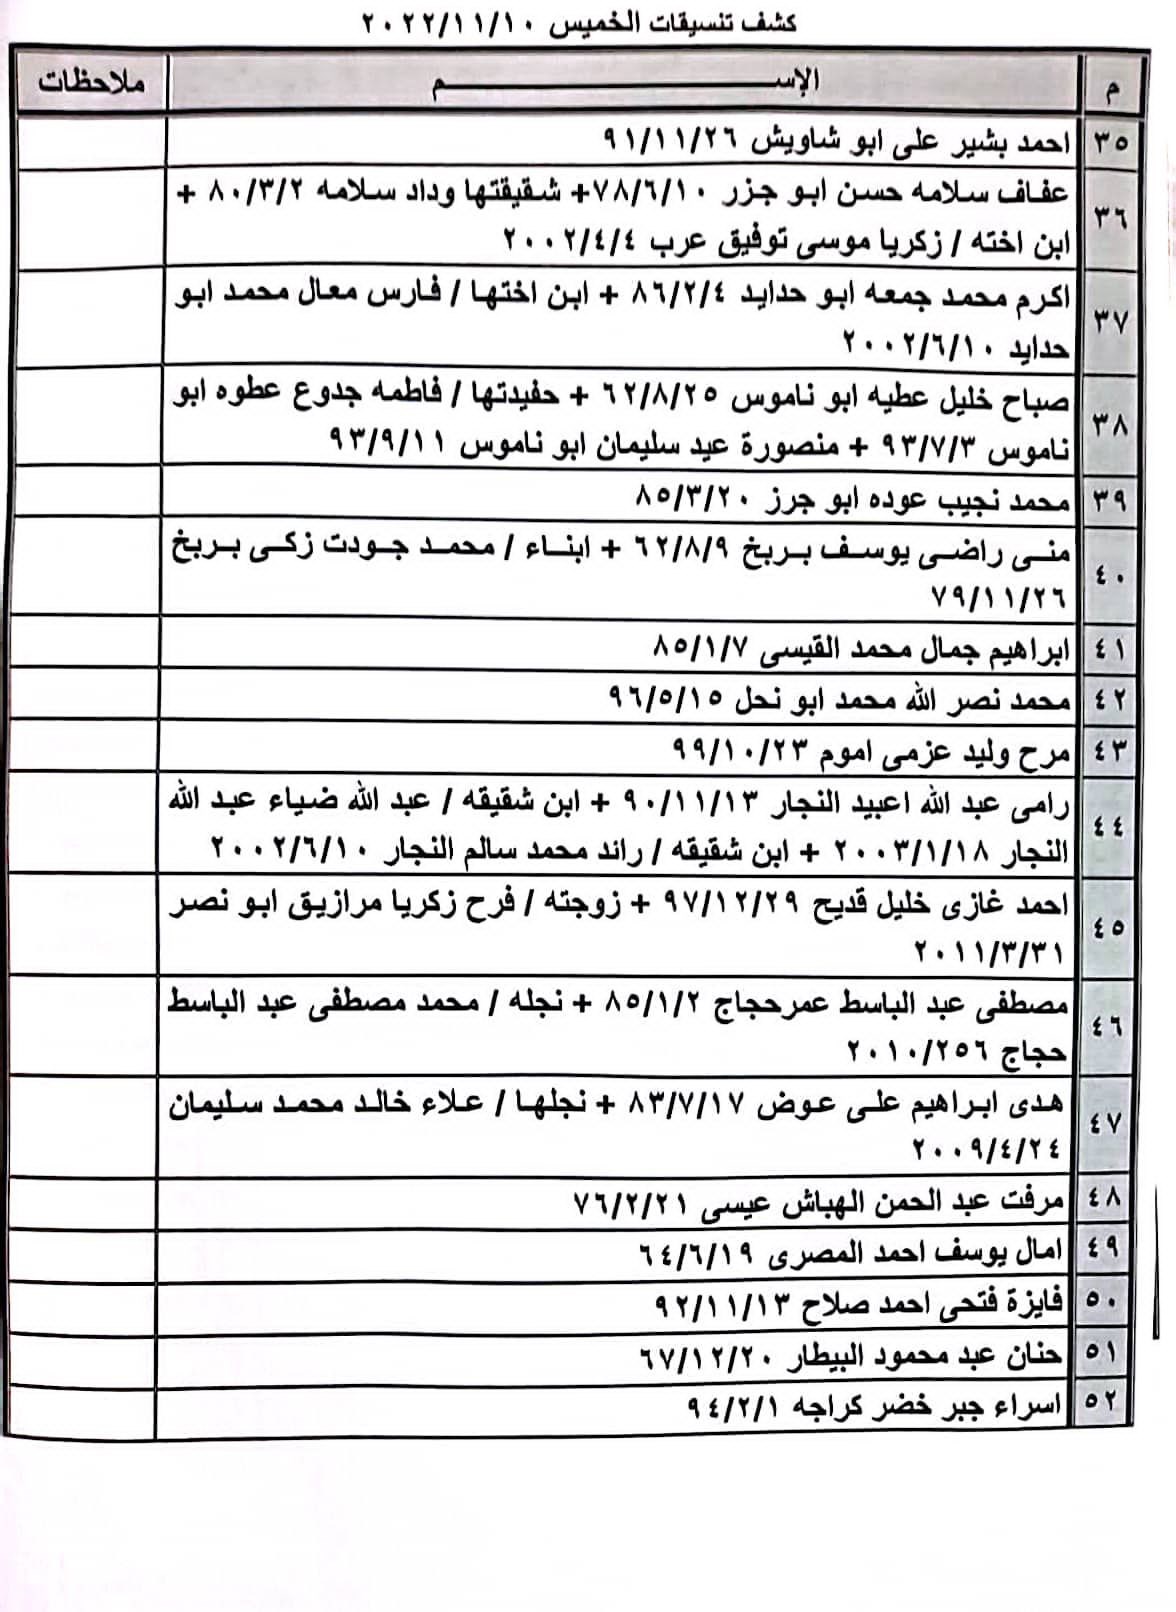 كشف تنسيقات الخميس ٢٠٢٢/١١/١٠
م الإســـــــــم ملاحظات
٣٥ احمد بشير على ابو شاويش ٩١/١١/٢٦
٣٦ عفاف سلامه حسن ابو جزر ٧٨/٦/١٠+ شقيقتها وداد سلامه ٨٠/٣/٢ +
ابن اخته / زكريا موسى توفيق عرب ٢٠٠٢/٤/٤
٣٧ اكرم محمد جمعه ابو حدايد ٨٦/٢/٤ + ابن اختها / فارس معال محمد ابو
حدايد ٢٠٠٢/٦/١٠
٣٨ صباح خليل عطيه ابو ناموس ٦٢/٨/٢٥ + حفيدتها / فاطمه جدوع عطوه ابو
ناموس ٩٣/٧/٣ + منصورة عيد سليمان ابو ناموس ٩٣/٩/١١
٣٩ محمد نجيب عوده ابو جرز ٨٥/٣/٢٠
٤٠ منى راضى يوسف بربخ ٦٢/٨/٩ + ابناء / محمد جودت زكى بربخ
٧٩/١١/٢٦
٤١ ابراهيم جمال محمد القيسى ٨٥/١/٧
٤٢ محمد نصر الله محمد ابو نحل ٩٦/٥/١٥
٤٣ مرح وليد عزمى اموم ٩٩/١٠/٢٣
٤٤ رامى عبد الله اعبيد النجار ٩٠/١١/١٣ + ابن شقيقه / عبد الله ضياء عبد الله
النجار ٢٠٠٣/١/١٨ + ابن شقيقه / رائد محمد سالم النجار ٢٠٠٢/٦/١٠
٤٥ احمد غازى خليل قديح ٩٧/١٢/٢٩ + زوجته / فرح زكريا مرازيق ابو نصر
٢٠١١/٣/٣١
٤٦ مصطفى عبد الباسط عمرحجاج ٨٥/١/٢ + نجله / محمد مصطفى عبد الباسط
حجاج ٢٠١٠/٢٥٦
٤٧ هدى ابراهيم على عوض ٨٣/٧/١٧ + نجلها / علاء خالد محمد سليمان
٢٠٠٩/٤/٢٤
٤٨ مرفت عبد الحمن الهباش عيسى ٧٦/٢/٢١
٤٩ امال يوسف احمد المصرى ٦٤/٦/١٩
٥٠ فايزة فتحى احمد صلاح ٩٢/١١/١٣
٥١ حنان عبد محمود البيطار ٦٧/١٢/٢٠
٥٢ اسراء جبر خضر كراجه ٩٤/٢/١